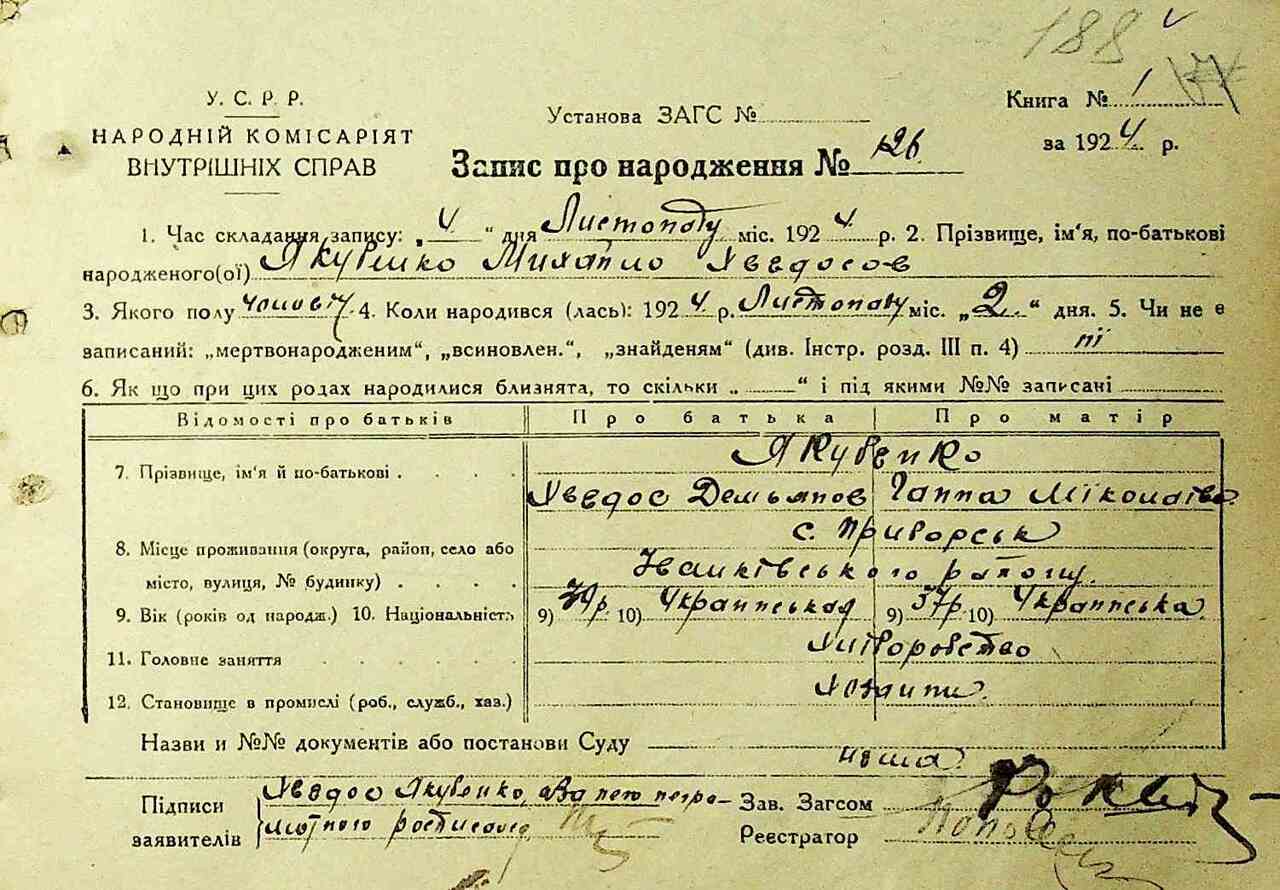 188
У. С. Р. Р.
НАРОДНІЙ КОМІСАРІЯТ
ВНУТРІШНІХ СПРАВ
Установа ЗАГС №
Книга № 1
за 1924 р.
Запис про народження № 126
1. Час складання запису: „4“ дня Листопаду міс. 1924 р. 2. Прізвище, ім'я, по-батькові
народженого(ої) Якувенко Михайло Хведосов
3. Якого полу чоловіч. 4. Коли народився (лась): 1924 р. Листопаду міс. „2“ дня. 5. Чи не є
записаний: „мертвонародженим“, „всиновлен.“, „знайденям“ (див. Інстр. розд. III п. 4) ні
6. Як що при цих родах народилися близнята, то скільки „ “ і під якими №№ записані
Відомості про батьків Про батька Про матір
7. Прізвище, ім'я й по-батькові . . . . Якувенко
Хведос Демьянов Ганна Міколаіва
8. Місце проживання (округа, район, село або с. Приворськ
місто, вулиця, № будинку) . . . . Іванківського району.
9. Вік (років од народж.) 10. Національність 9) 39р. 10) Украінськая 9) 37р. 10) Украінська
11. Головне заняття . . . . . . Хліборобство
12. Становище в промислі (роб., служб., хаз.) Хозаіни.
Назви и №№ документів або постанови Суду нема
Підписи Хведос Якубенко, а за него негра-
заявителів мотного росписався
Зав. Загсом
Реєстратор